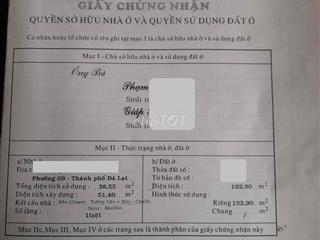 GIẤY CHỨNG NHẬN
QUYỀN SỞ HỮU NHÀ Ở VÀ QUYỀN SỬ DỤNG ĐẤT Ở
Cá nhân hoặc tổ chức có tên ghi tại mục I là chủ sở hữu nhà ở và sử dụng đất ở
Mục I - Chủ sở hữu nhà ở và sử dụng đất ở
Ông Bà
Phạm
Sinh
Giáp
Sinh
chợTỐT
Mục II - Thực trạng nhà ở, đất ở
a/ Nhà b/ Đất ở
Địa c Thửa đất số
Phường 09 - Thành phố Đà Lạt Tờ bản đồ số
Tổng diện tích sử dụng : 38,55 m2 Diện tích : 192,90 m2
Diện tích xây dựng : 51,40 m2 Hình thức sử dụng :
Kết cấu nhà : Riêng 192,90 m2
Số tầng : 1trệt Chung / m2
Mục IIc, Mục III, Mục IV ở các trang sau là thành phần của giấy chứng nhận này